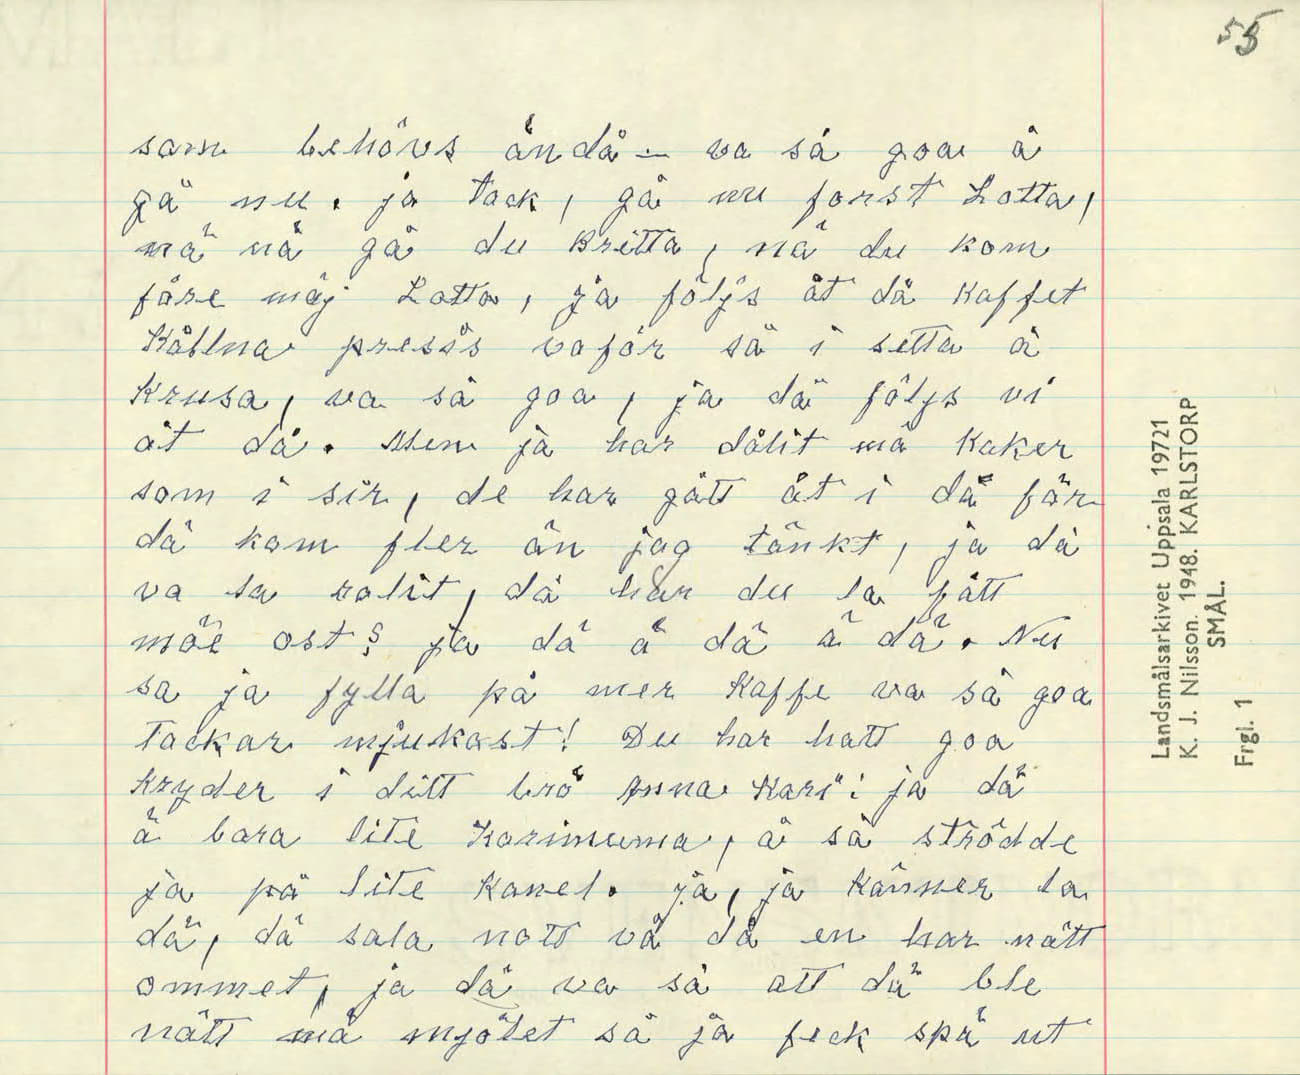 55
som behövs ändå – va så goa å
gå nu. ja tack, gå nu först Lotta,
nä nä gå du Britta, nä du kom
före mäj Lotta, ja följs åt då kaffet
kållna presis vaför sä i setta å
krusa, va så goa, ja då följs vi
åt då. Men ja har dålit mä kaker
som i sir, de har gått åt i dä för
dä kom fler än jag tänkt, ja dä
va la rolit, dä har du la fått
möe ost? ja dä ä dä ä dä. Nu
sa ja fylla på mer kaffe va så goa
tackar mjukast! Du har hatt goa
kryder i ditt brö Anna Kari: ja dä
ä bara lite Karimuma, å så strödde
ja på lite kanel. ja, ja känner la
dä, dä sala nott vå då en har nått
ommet, ja dä va så att dä ble
nått må mjölet så ja feck spä ut
Landsmålsarkivet Uppsala 19721
K. J. Nilsson. 1948. KARLSTORP
SMÅL.
Frgl. 1